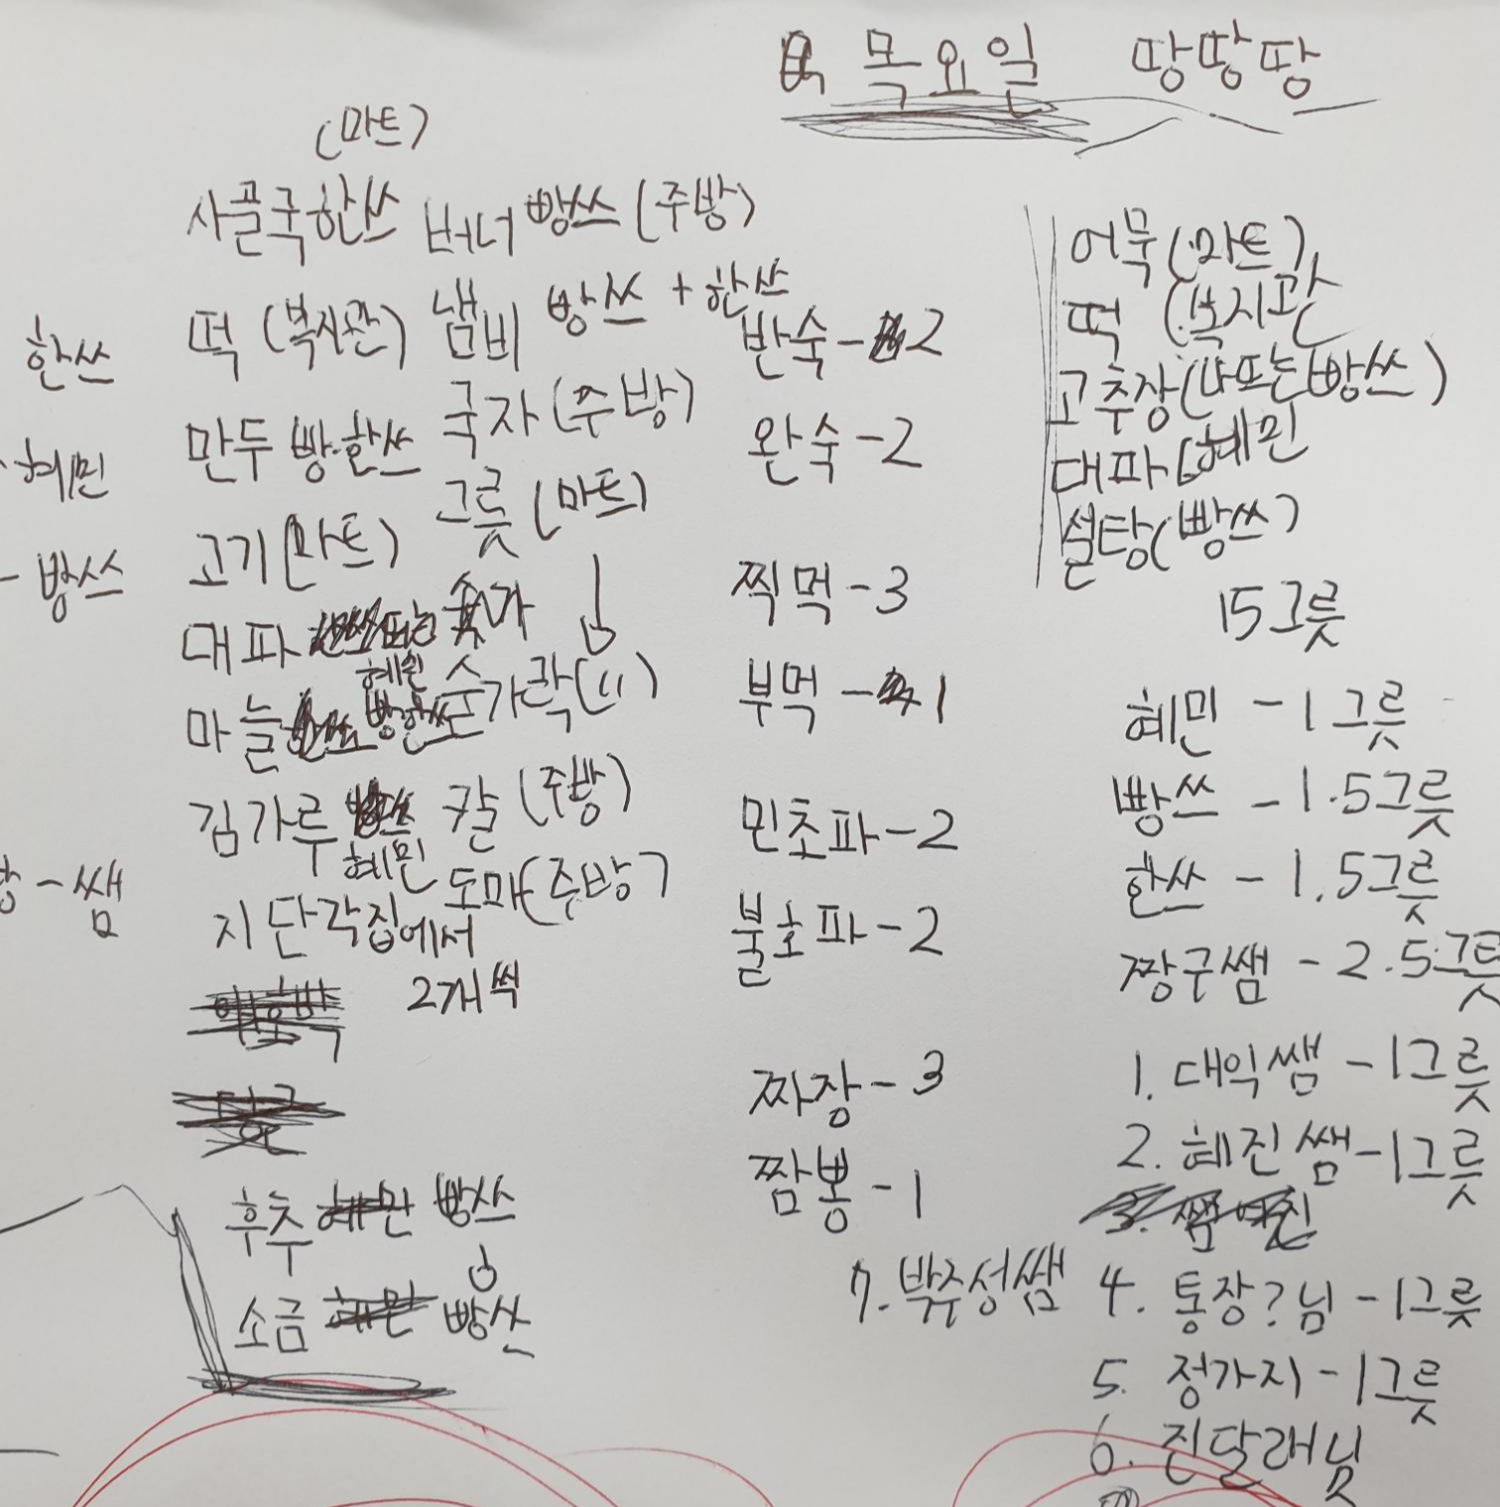 목요일 땅땅땅
(마트)
사골국 한쓰 버너 빵쓰 (주방)
떡 (복지관) 냄비 빵쓰 + 한쓰
만두 빵·한쓰 국자 (주방)
고기 (마트) 그릇 (마트)
대파 혜민
마늘 빵한쓰 숟가락 (〃)
김가루 혜민 칼 (주방)
지단 각집에서 2개씩 도마 (주방)
후추 빵쓰
소금 빵쓰
한쓰
혜민
- 빵쓰
- 쌤
반숙 - 2
완숙 - 2
찍먹 - 3
부먹 - 1
민초파 - 2
불호파 - 2
짜장 - 3
짬뽕 - 1
어묵 (마트)
떡 (복지관)
고추장 (나 또는 빵쓰)
대파 (혜민
설탕 (빵쓰)
15그릇
혜민 - 1그릇
빵쓰 - 1.5그릇
한쓰 - 1.5그릇
짱구쌤 - 2.5그릇
1. 대익쌤 - 1그릇
2. 혜진쌤 - 1그릇
4. 통장?님 - 1그릇
5. 정가지 - 1그릇
6. 진달래님
7. 박주성쌤